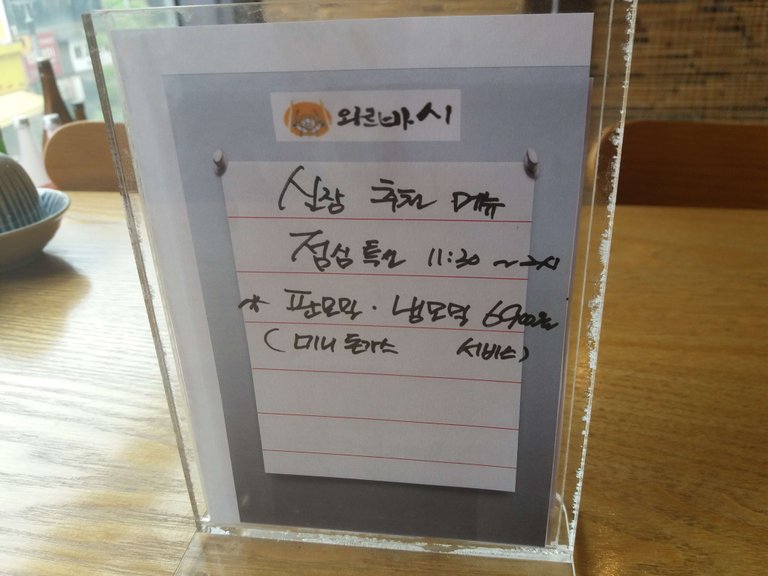 와르바시
실장 추천 메뉴
점심 특선 11:30 ~ 2시
* 판모밀 · 냉모밀 6900원
(미니 돈가스 서비스)